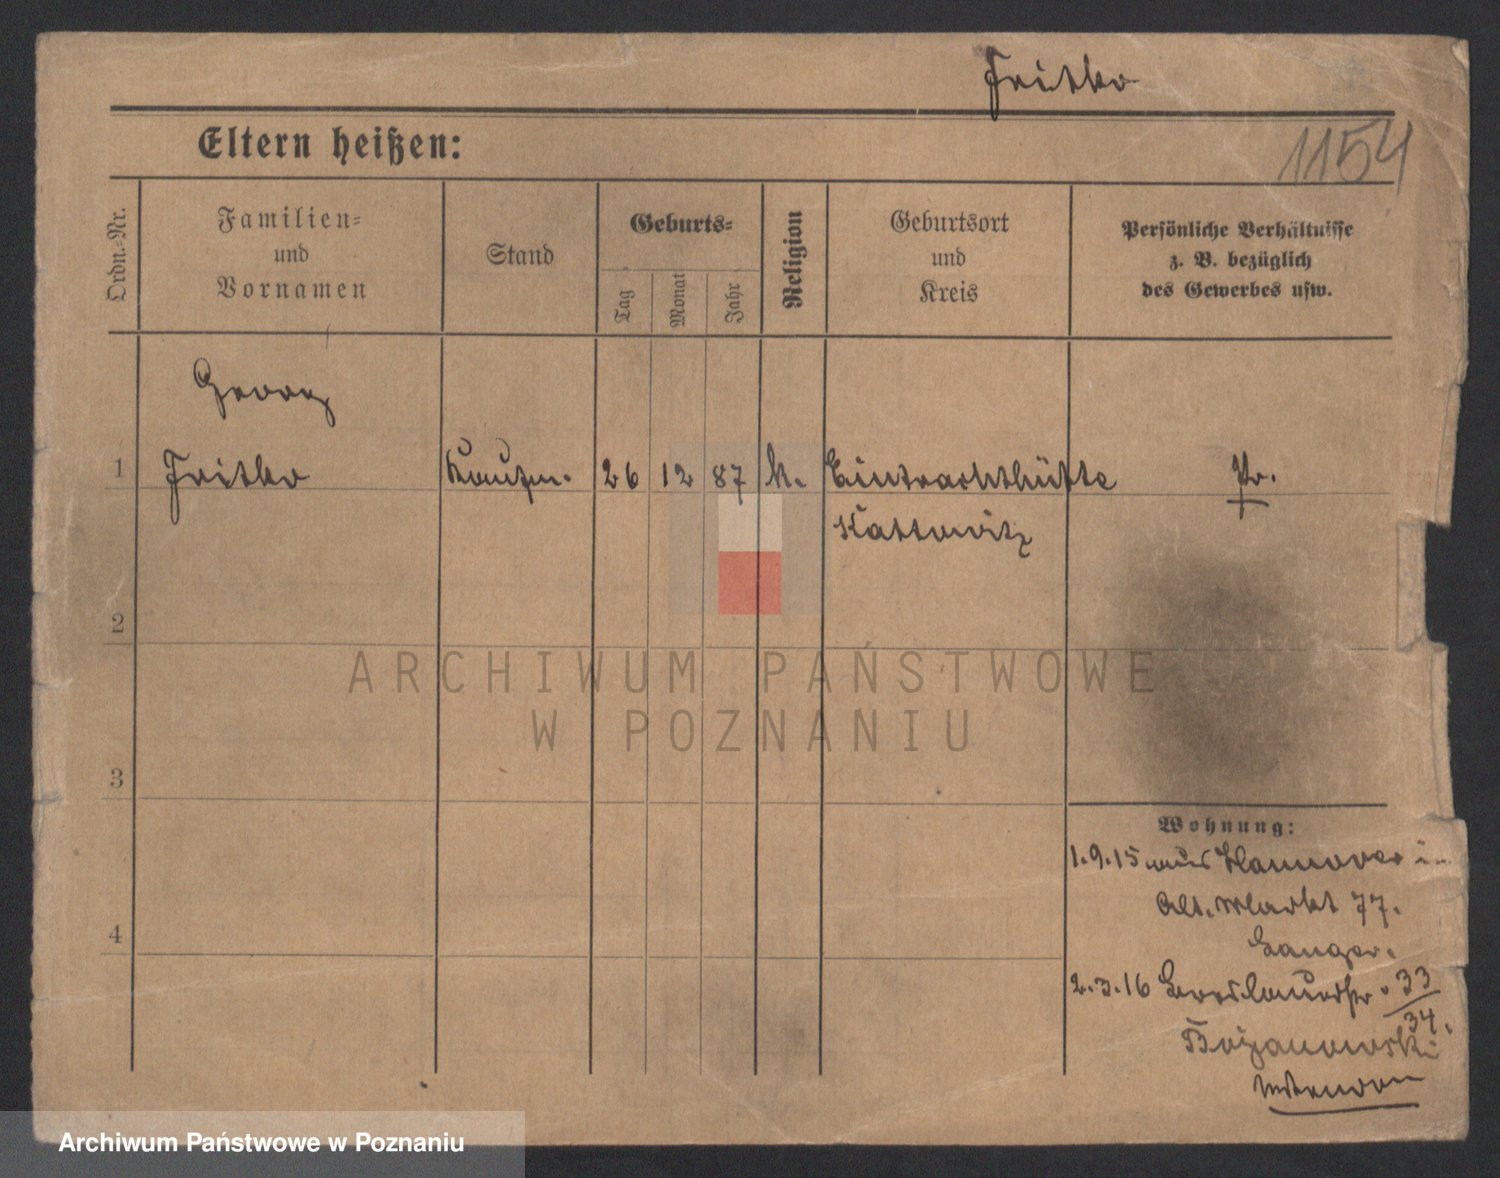 Fritko
1154
Eltern heißen:
Ordn.-Nr.
Familien-
und
Vornamen
Stand
Geburts-
Tag
Monat
Jahr
Religion
Geburtsort
und
Kreis
Persönliche Verhältnisse
z. B. bezüglich
des Gewerbes usw.
Georg
1 Fritko Kaufm. 26 12 87 k. Eintrachthütte Pr.
Kattowitz
2
3
4
Wohnung:
1.9.15 aus Hannover in
Alt. Markt 77.
Langer.
2.3.16 Breslauerstr. 33/34.
Bojanowski
ARCHIWUM PAŃSTWOWE
W POZNANIU
Archiwum Państwowe w Poznaniu